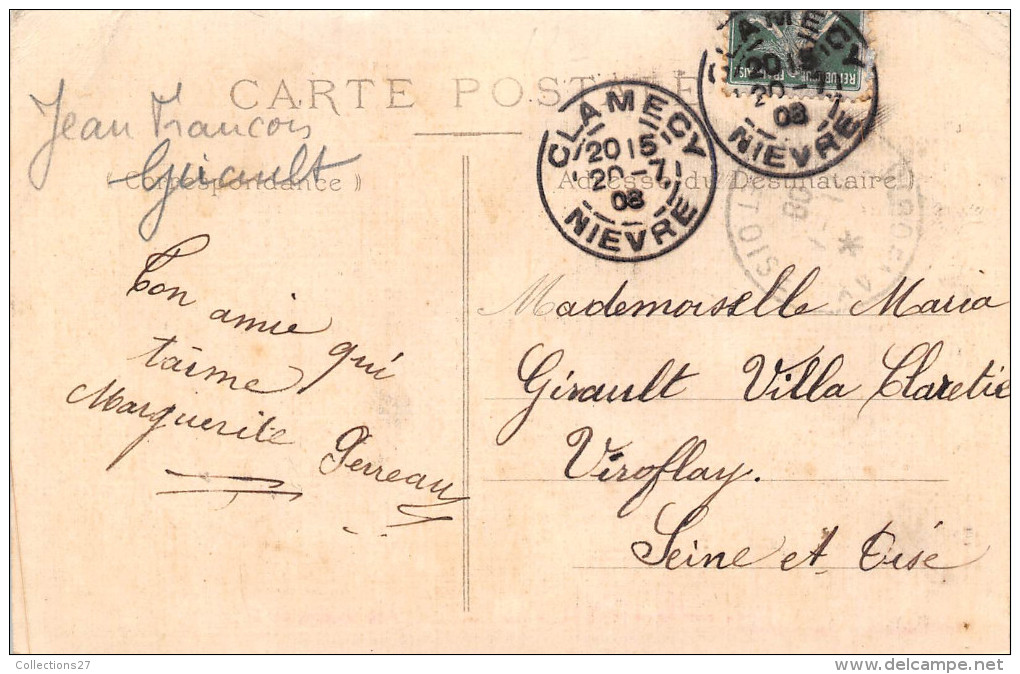 CARTE POSTALE
Jean Francois
Girault
(Correspondance)
Adresse du Destinataire)
CLAMECY
2015
20-7
08
NIEVRE
CLAMECY
2015
20-7
08
NIEVRE
REPUBLIQUE
FRANÇAISE
Ton
amie qui
t'aime
Marguerite Perreau
Mademoiselle Maria
Girault Villa Claretie
Viroflay.
Seine et Oise
Collections27
delcampe.net